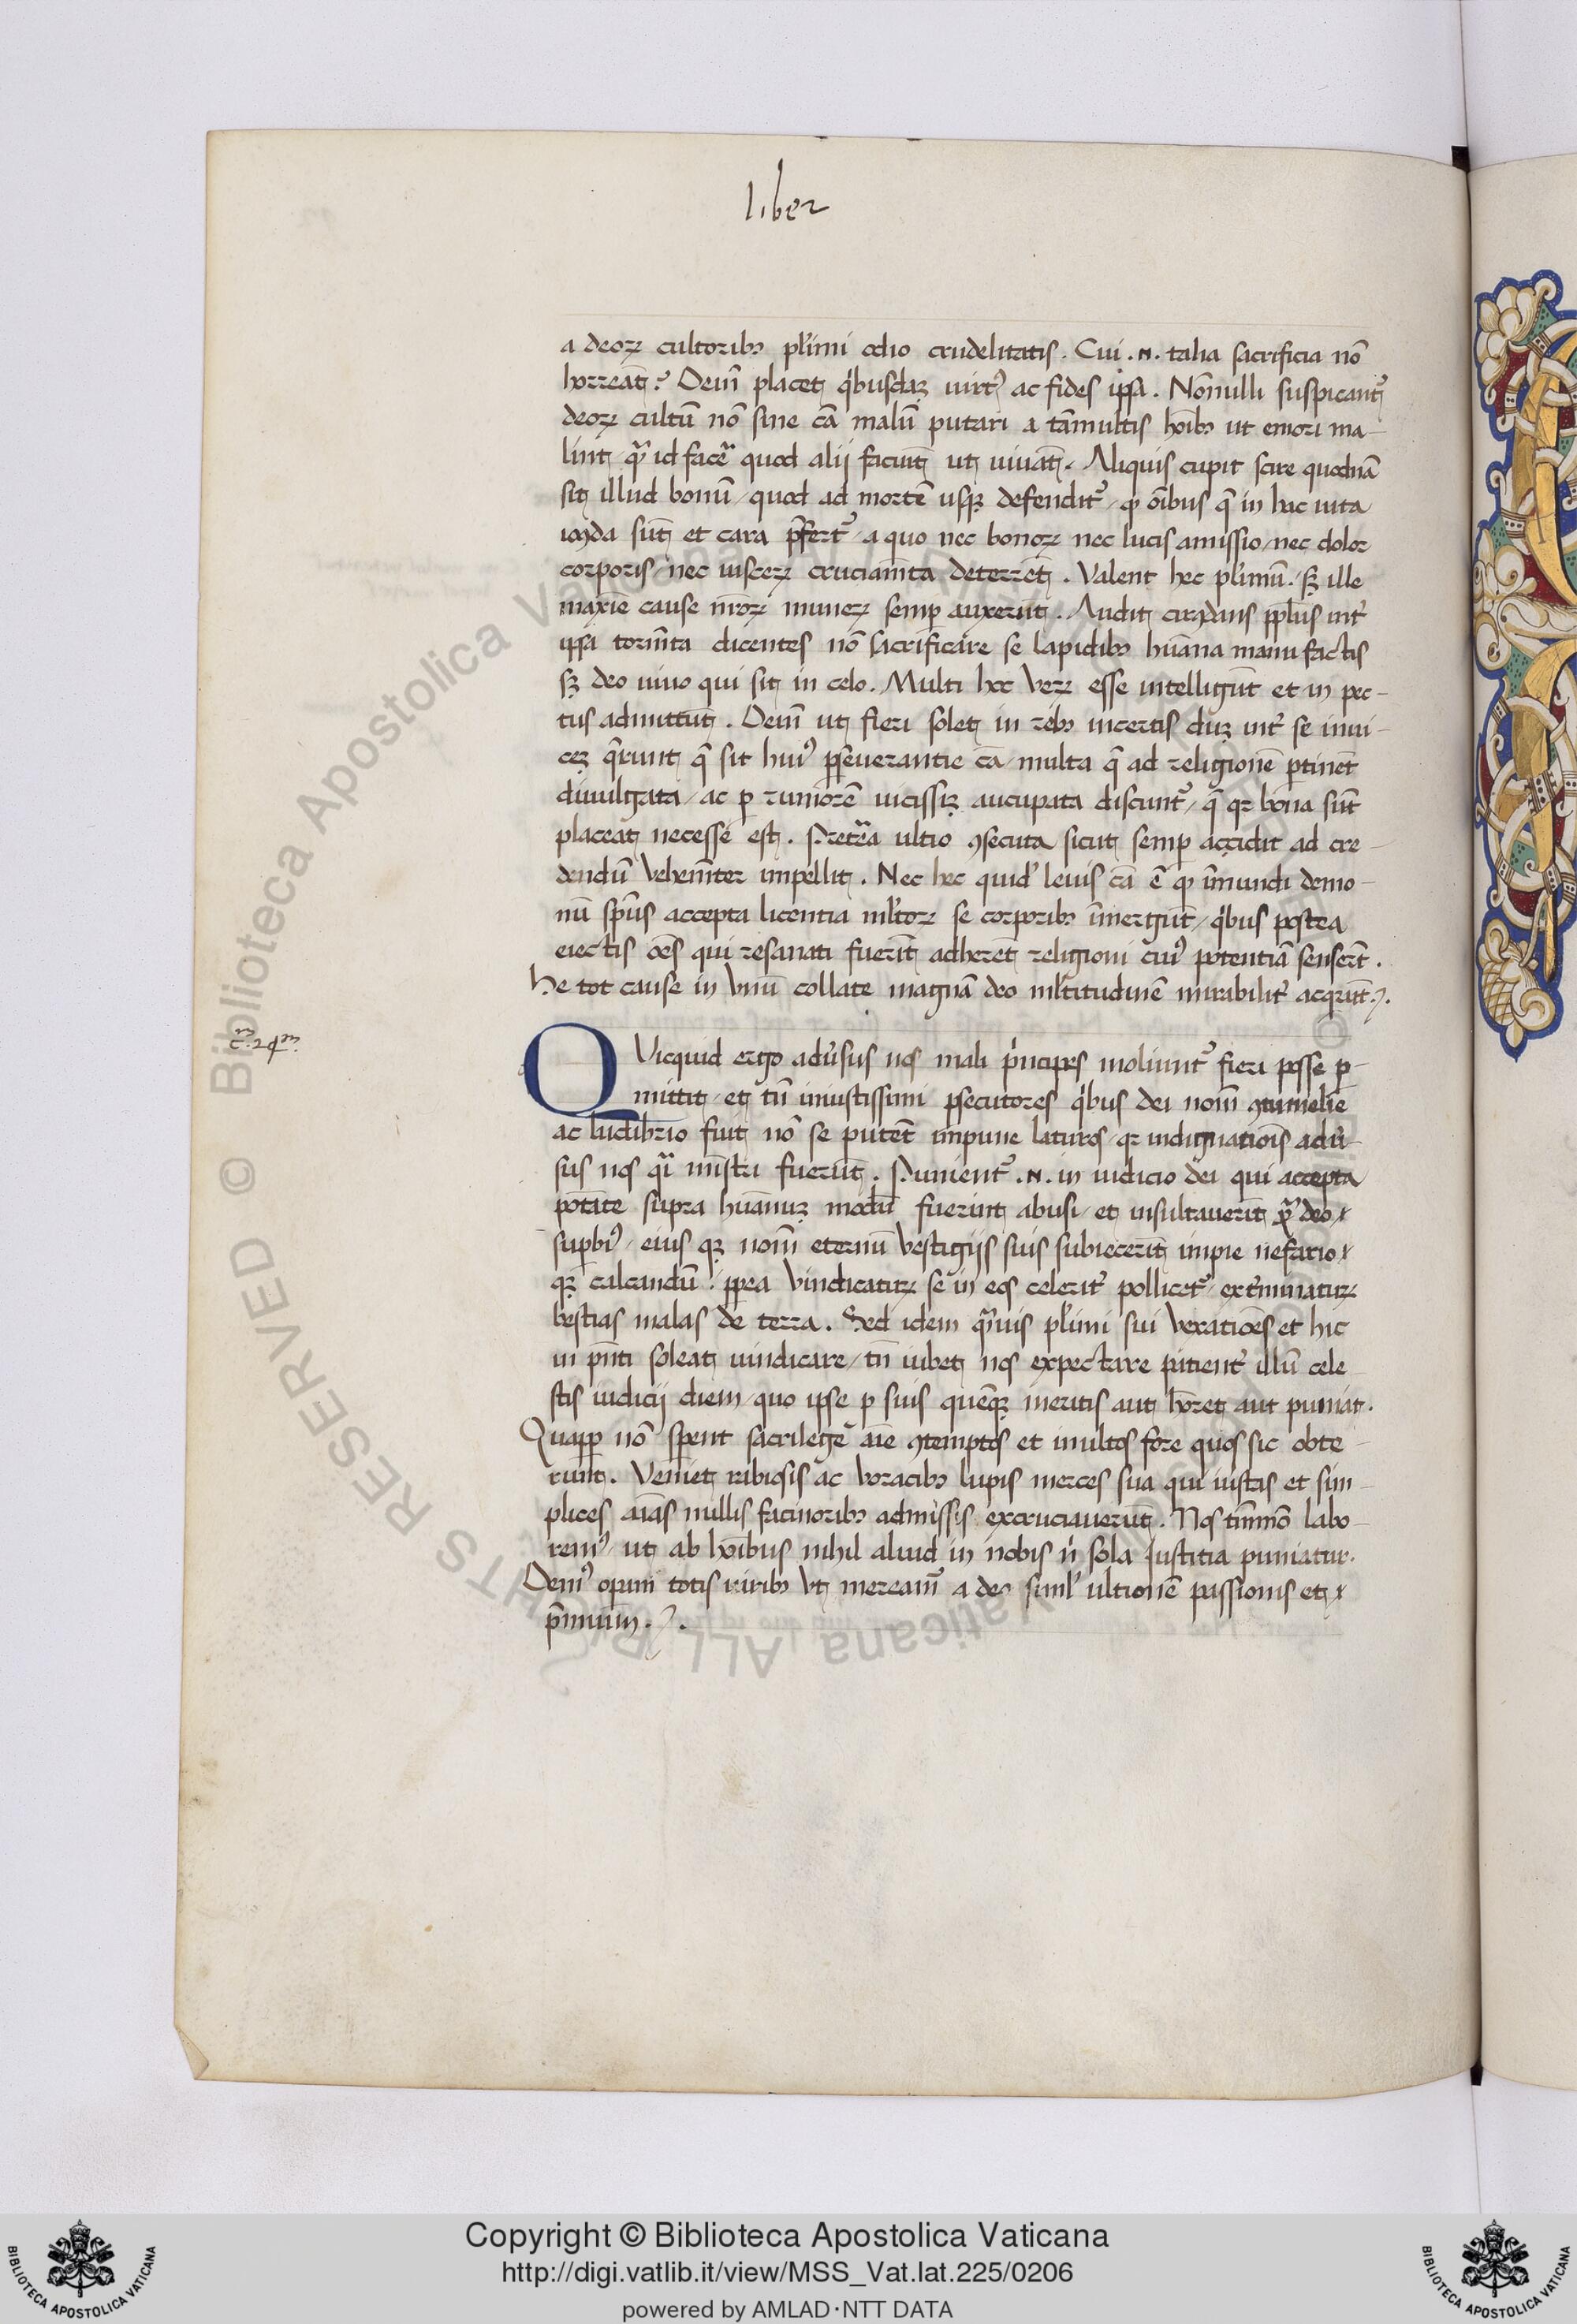 liber
a deoꝝ cultoribꝰ pl'imi odio crudelitatis. Cui .n. talia sacrificia nō
horreāt? Deiñ placet qͥbusdaꝫ uirtꝰ ac fides ipsa. Nōnulli suspicant᷑
deoꝝ cultū nō sine cā malū putari a tāmultis hoībꝫ ut emori ma-
lint qᷓ id facē quod alij faciūt ut uiuāt. Aliquis cupit scire quodnā
sit illud bonū / quod ad mortē usqꝫ defendit᷑ / qͩ oībus q̄ in hac uita
iocūda sūt et cara p̄fert᷑ / a quo nec bonoꝝ nec lucis amissio / nec dolor
corporis / nec uisceꝝ cruciam̄ta deterrēt. Valent hec pl'imū. sꝫ ille
maxīe cause nr̄oꝝ numeꝝ semꝑ auxerūt. Audit circūstans pp̄lus int᷑
ipsa torm̄ta dicentes nō sacrificare se lapidibꝫ hūana manu factis
sꝫ deo uiuo qui sit in celo. Multi hoc veꝝ esse intelligūt et in pec-
tus admittūt. Deiñ ut fieri solet in rebꝫ incertis duꝫ int᷑ se inui-
ceꝫ q̄runt q̄ sit huiꝰ ꝑseuerantie cā / multa q̄ ad religionē ꝑtinēt
diuulgata / ac ꝑ rumorē uicissiꝫ aucupata discunt᷑ / q̄ qꝛ bona sūt
placeāt necesse est. Pretēa ultio ꝯsecuta sicut semꝑ accidit ad cre-
dendū vehem̄ter impellit. Nec hec quidē leuis cā ē qͩ īmundi demo-
nū sp̄us accepta licentia ml'toꝝ se corporibꝫ īmergūt / qͥbus postea
eiectis oēs qui resanati fuerīt adherēt religioni cuiꝰ potentiā senserūt.
he tot cause in vnū collate magnā deo ml'titudinē mirabilit᷑ acqrūt.
QVicquid ergo aduͥsus nos mali pͥncipes moliunt᷑ fieri posse ꝑ-
mittit / et tn̄ iniustissimi ꝑsecutores qͥbus dei nom̄ ꝯtumelie
ac ludibrio fuit nō se putēt impune laturos / qꝛ indignatiōis aduͥ-
sus nos qͣi mīstri fuerūt. Punient᷑ .n. in iudicio dei qui accepta
potāte supra hūanuꝫ modū fuerint abusi / et insultauerīt deo
suꝑbiꝰ / eius qꝫ nom̄ eternū vestigijs suis subiecerīt impie nefario
qꝫ calcandū. ꝓpea vindicatuꝝ se in eos celerit᷑ pollicet᷑ / ext᷑minatuꝝ
bestias malas de terra. Sed idem qᷓuis pl'imi sui vexatiōes et hic
in pn̄ti soleat uindicare / tn̄ iubet nos expectare patient᷑ illū cele
stis iudicij diem / quo ipse ꝓ suis quēqꝫ meritis aut hōret aut puniat.
Quapp nō spent sacrilege aīe ꝯtemptos et inultos fore quos sic obte-
runt. Veniet rabiosis ac voracibꝫ lupis merces sua qui iustas et sim-
plices aīas nullis facinoribꝫ admissis excruciauerūt. Nos tm̄mō labo-
remꝰ / ut ab hoībus nihil aliud in nobis nͥ sola Justitia puniatur.
Demꝰ oꝑam totis uiribꝫ vt meream̄ a deo siml' ultionē passionis et
p̄mium.
Copyright © Biblioteca Apostolica Vaticana
http://digi.vatlib.it/view/MSS_Vat.lat.225/0206
powered by AMLAD·NTT DATA
BIBLIOTECA APOSTOLICA VATICANA
BIBLIOTECA APOSTOLICA VATICANA